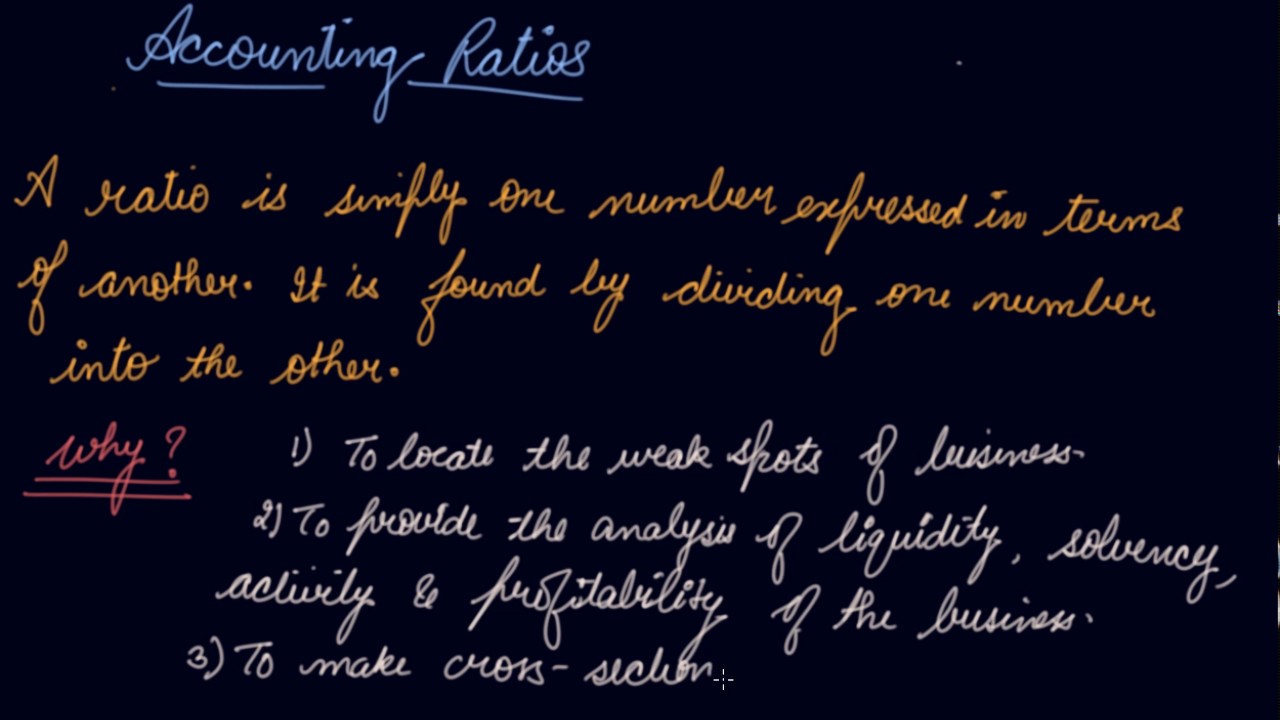 Accounting Ratios
A ratio is simply one number expressed in terms
of another. It is found by dividing one number
into the other.
Why? 1) To locate the weak spots of business.
2) To provide the analysis of liquidity, solvency,
activity & profitability of the business.
3) To make cross-section